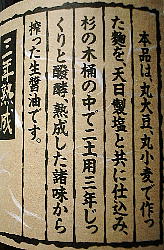 本品は、丸大豆、丸小麦で作っ
た麹を、天日製塩と共に仕込み、
杉の木桶の中で二土用三年じっ
くりと醗酵、熟成した諸味から
搾った生醤油です。
三年熟成